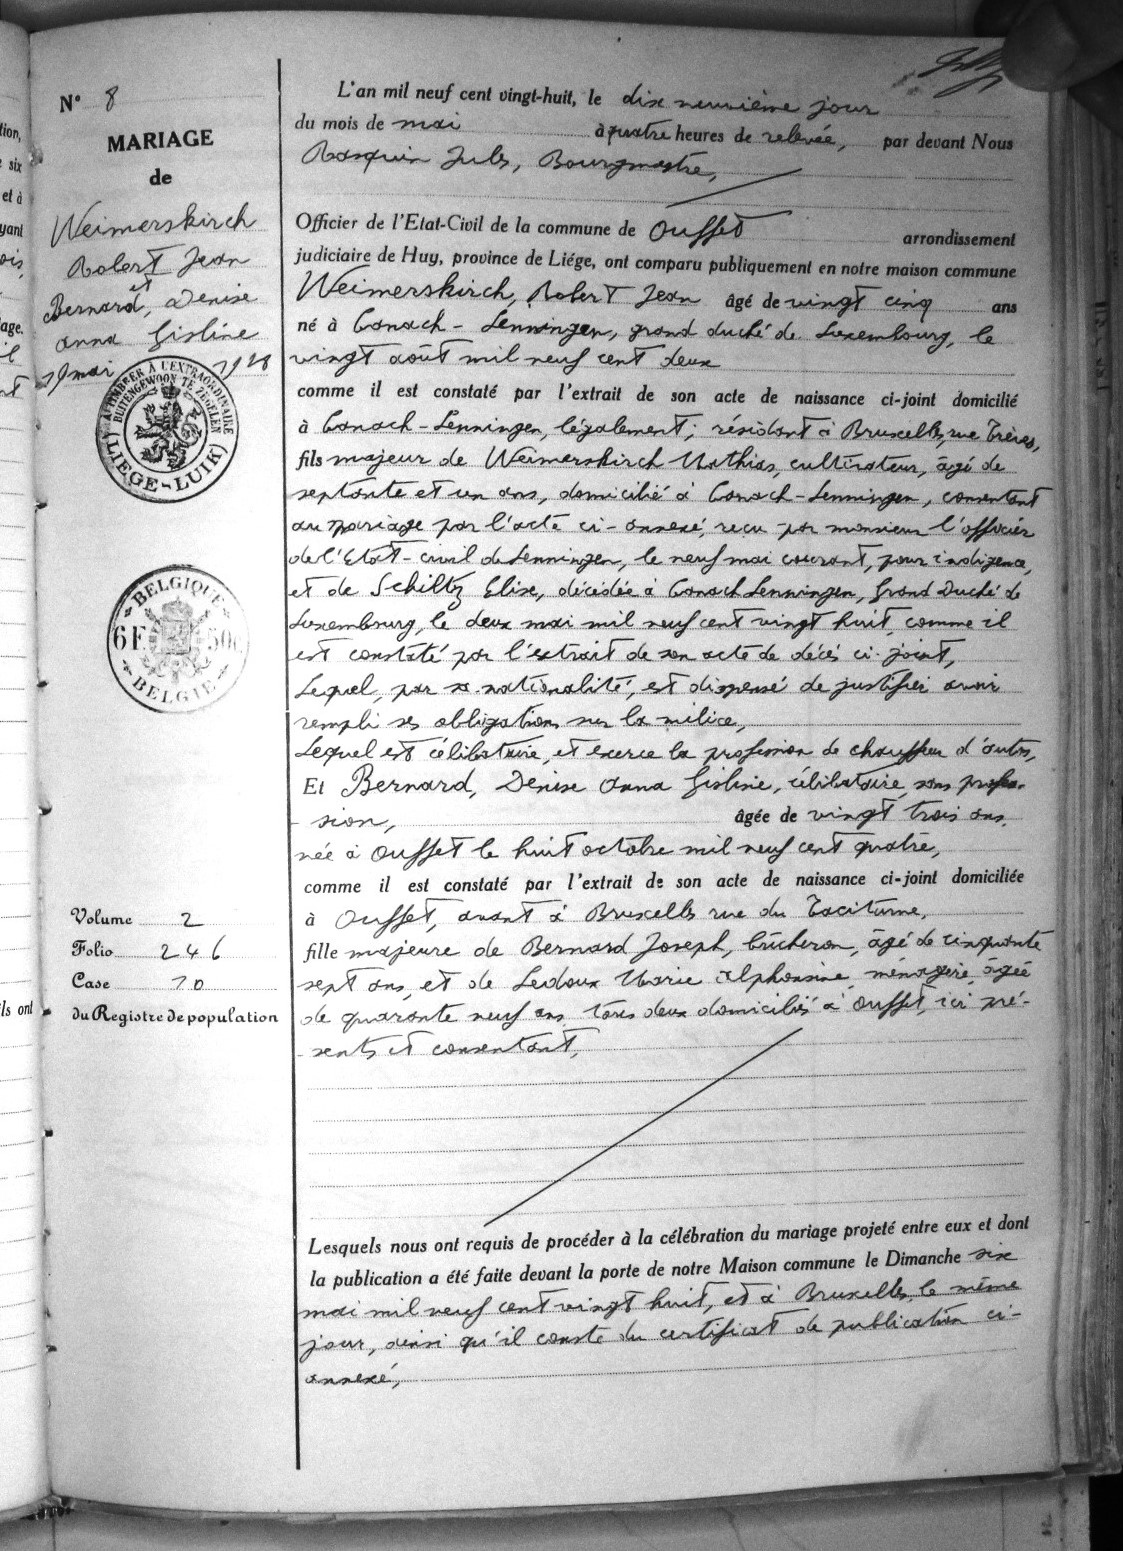 N° 8
MARIAGE
de
Weimerskirch
Robert Jean
et
Bernard, Denise
Anna Gisline
19 mai 1928
A TIMBRER À L'EXTRAORDINAIRE
BUITENGEWOON TE ZEGELEN
LIÉGE-LUIK
BELGIQUE
6F 50C
BELGIE
Volume 2
Folio 246
Case 10
du Registre de population
L'an mil neuf cent vingt-huit, le dix neuvième jour
du mois de mai à quatre heures de relevée, par devant Nous
Rasquin Jules, Bourgmestre,
Officier de l'Etat-Civil de la commune de Ouffet arrondissement
judiciaire de Huy, province de Liége, ont comparu publiquement en notre maison commune
Weimerskirch, Robert Jean âgé de vingt cinq ans
né à Canach - Lenningen, grand duché de Luxembourg, le
vingt août mil neuf cent deux
comme il est constaté par l'extrait de son acte de naissance ci-joint domicilié
à Canach - Lenningen, légalement; résidant à Bruxelles, rue Trèves,
fils majeur de Weimerskirch Mathias, cultivateur, âgé de
septante et un ans, domicilié à Canach - Lenningen, consentant
au mariage par l'acte ci-annexé, reçu par monsieur l'officier
de l'Etat-civil de Lenningen, le neuf mai courant, pour indigence,
et de Schiltz Elise, décédée à Canach Lenningen, Grand Duché de
Luxembourg, le deux mai mil neuf cent vingt huit, comme il
est constaté par l'extrait de son acte de décès ci-joint,
Lequel, par sa nationalité, est dispensé de justifier avoir
rempli ses obligations sur la milice,
Lequel est célibataire, et exerce la profession de chauffeur d'autos,
Et Bernard, Denise Anna Gisline, célibataire, sans profes-
sion, âgée de vingt trois ans,
née à Ouffet le huit octobre mil neuf cent quatre,
comme il est constaté par l'extrait de son acte de naissance ci-joint domiciliée
à Ouffet, avant à Bruxelles rue du Taciturne,
fille majeure de Bernard Joseph, bûcheron, âgé de cinquante
sept ans, et de Ledoux Marie Alphonsine, ménagère, âgée
de quarante neuf ans, tous deux domiciliés à Ouffet, ici pré-
sents et consentant,
Lesquels nous ont requis de procéder à la célébration du mariage projeté entre eux et dont
la publication a été faite devant la porte de notre Maison commune le Dimanche six
mai mil neuf cent vingt huit, et à Bruxelles le même
jour, ainsi qu'il conste du certificat de publication ci-
annexé,